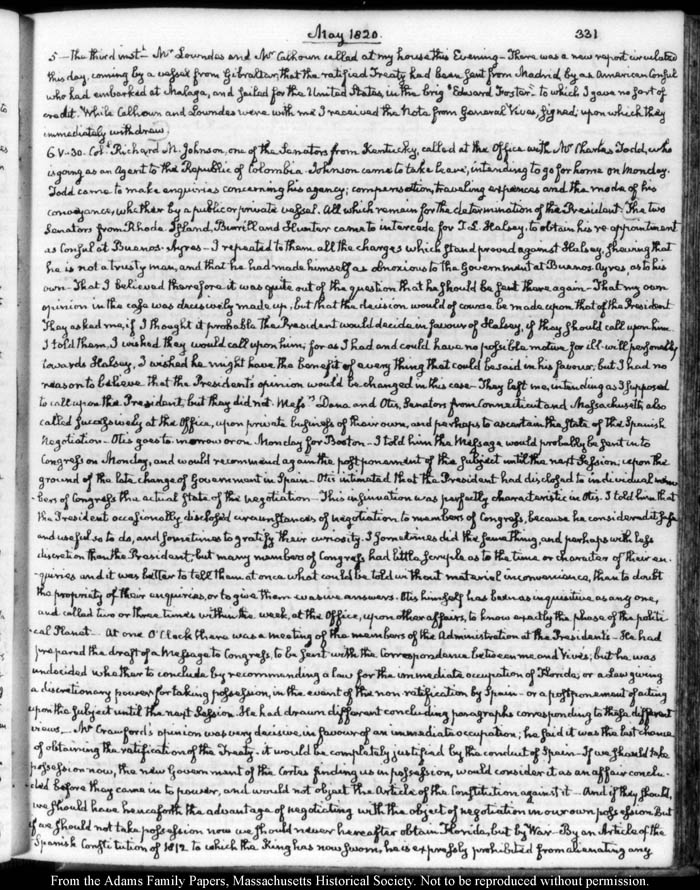 May 1820. 331
5 — The third inst.t Mr Lowndes and Mr Calhoun called at my house this Evening — There was a new report circulated
this day, coming by a vessel from Gibraltar, that the ratified Treaty had been sent from Madrid, by an American Consul
who had embarked at Malaga, and sailed for the United States, in the brig "Edward Foster" to which I gave no sort of
credit. While Calhoun and Lowndes were with me I received the Note from General Vives, signed; upon which they
immediately withdrew.
6 V-30. Col.l Richard M. Johnson, one of the Senators from Kentucky, called at the Office with Mr Charles Todd, who
is going as an Agent to the Republic of Colombia. Johnson came to take leave; intending to go for home on Monday.
Todd came to make enquiries concerning his agency; compensation, traveling expences and the mode of his
conveyance, whether by a public or private vessel. All which remain for the determination of the President. The two
Senators from Rhode Island, Burrill and Hunter came to intercede for T. L. Halsey, to obtain his re-appointment
as Consul at Buenos-Ayres — I repeated to them all the charges which stand proved against Halsey, shewing that
he is not a trusty man, and that he had made himself as obnoxious to the Government at Buenos Ayres, as to his
own — That I believed therefore it was quite out of the question that he should be sent there again — That my own
opinion in the case was decisively made up, but that the decision would of course be made upon that of the President
They asked me, if I thought it probable the President would decide in favour of Halsey, if they should call upon him
I told them, I wished they would call upon him; for as I had and could have no possible motive for ill-will personally
towards Halsey, I wished he might have the benefit of every thing that could be said in his favour, but I had no
reason to believe that the President's opinion would be changed in this case — They left me, intending as I supposed
to call upon the President, but they did not. Mess.rs Dana and Otis, Senators from Connecticut and Massachusetts also
called successively at the Office, upon private business of their own, and perhaps to ascertain the state of the Spanish
Negotiation — Otis goes to-morrow or on Monday for Boston — I told him the Message would probably be sent in to
Congress on Monday, and would recommend again the postponement of the subject until the next Session; upon the
ground of the late change of Government in Spain — Otis intimated that the President had disclosed to individual mem-
-bers of Congress the actual state of the negotiation — This insinuation was perfectly characteristic in Otis. I told him that
the President occasionally disclosed circumstances of negotiation to members of Congress, because he considered it safe
and useful so to do, and sometimes to gratify their curiosity. I sometimes did the same thing, and perhaps with less
discretion than the President; but many members of Congress had little scruple as to the time or character of their en-
-quiries and it was better to tell them at once what could be told without material inconvenience, than to doubt
the propriety of their enquiries, or to give them evasive answers. Otis himself has been as inquisitive as any one,
and called two or three times within the week, at the Office, upon other affairs, to know exactly the phase of the politi-
-cal Planet — At one O'Clock there was a meeting of the members of the Administration at the President's — He had
prepared the draft of a Message to Congress, to be sent with the Correspondence between me and Vives; but he was
undecided whether to conclude by recommending a law for the immediate occupation of Florida; or a Law giving
a discretionary power for taking possession, in the event of the non ratification by Spain — or a postponement of acting
upon the subject until the next Session. He had drawn different concluding paragraphs corresponding to these different
views — Mr Crawford's opinion was very decisive in favour of an immediate occupation; he said it was the last chance
of obtaining the ratification of the Treaty — it would be completely justified by the conduct of Spain — If we should take
possession now, the new Government of the Cortes finding us in possession, would consider it as an affair conclu-
-ded before they came in to power, and would not object the Article of the Constitution against it — And if they should,
we should have henceforth the advantage of negotiating with the object of negotiation in our own possession. But
if we should not take possession now we should never hereafter obtain Florida, but by War — By an Article of the
Spanish Constitution of 1812 to which the King has now sworn, he is expressly prohibited from alienating any
From the Adams Family Papers, Massachusetts Historical Society. Not to be reproduced without permission.